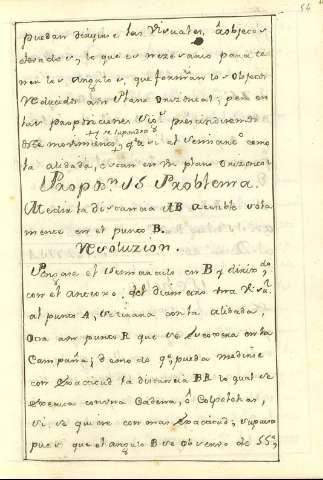 54
puedan dirigirse las Visuales, á objectos
elevados, lo que es nezesario para te
ner los angulos, que forman los objectos
reducidos aun Plano Orizontal; pero en
las proposiciones
este movimiento, que asi el semicirculo como
la alidada, esten en un plano Orizontal
Propon. 15 Problema.
Medir la distancia AB accesible sola
mente en el punto B.
Resoluzion.
Pongase el semicirculo en B y dirixido,
con el anteoxo, del diametro una Visual
al punto A, se tirara con la alidada,
Otra aun punto R que se encoxera en la
Campaña; demodo que, pueda medirse
con exactitud la distancia BR lo qual se
executa con una Cadena, ó
si, se quiere con mas exactitud; supongo
pues que el angulo B se observo de 55°,